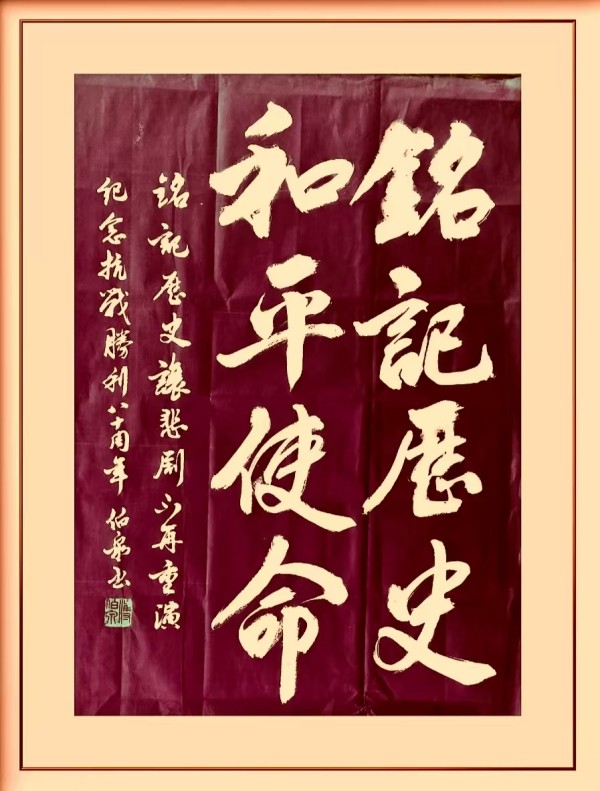 銘記歷史
和平使命
銘記歷史讓悲劇不再重演
紀念抗戰勝利八十周年 伯泉书